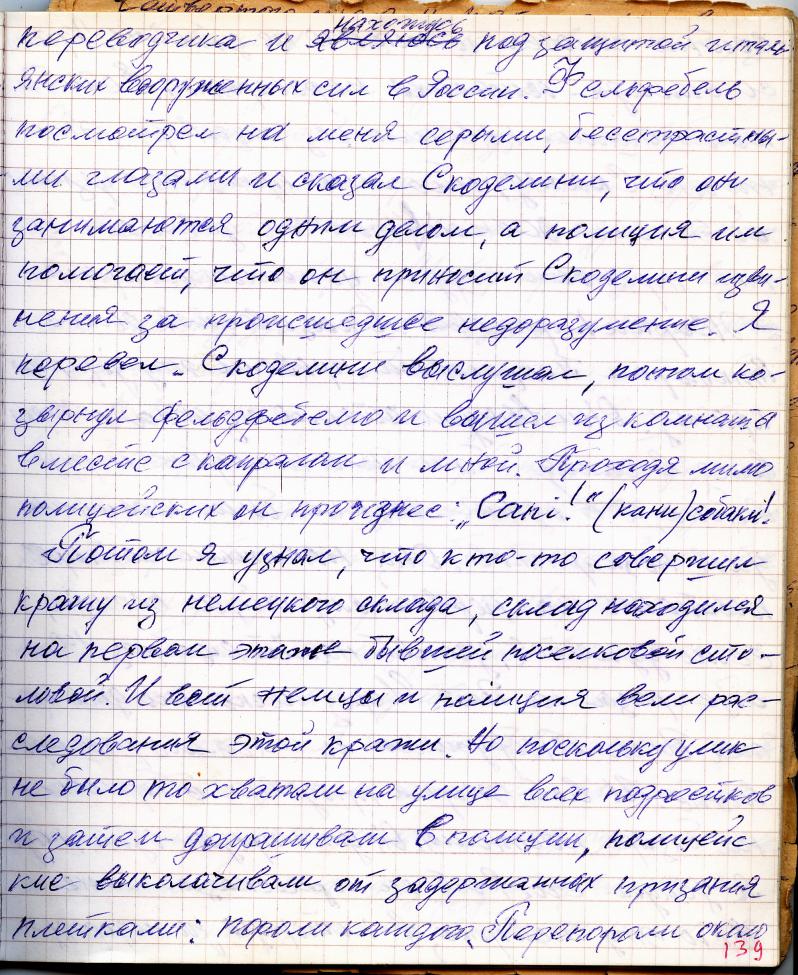 находюсь
переводчика и являюсь под защитой италь-
янских вооруженных сил в России. Фельдфебель
посмотрел на меня серыми, бесстрастны-
ми глазами и сказал Скоделини, что они
занимаются одним делом, а полиция им
помогает, что он приносит Скоделини изви-
нения за происшедшее недоразумение. Я
перевел. Скоделини выслушал, потом ко-
зырнул фельдфебелю и вышел из комнаты
вместе с капралом и мной. Проходя мимо
полицейских он произнес: „Cani!“ (кани) собаки!
Потом я узнал, что кто-то совершил
кражу из немецкого склада, склад находился
на первом этаже бывшей поселковой сто-
ловой. И вот немцы и полиция вели рас-
следования этой кражи. Но поскольку улик
не было то хватали на улице всех подростков
и затем допрашивали в полиции, полицейс
кие выколачивали от задержанных призания
плетками: пороли каждого. Перепороли около
139